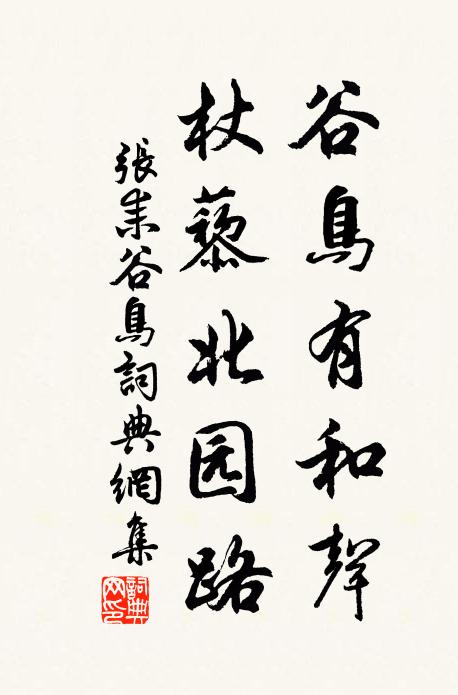 谷鳥有和聲
杖藜北园路
張耒谷鳥詞典網集
詞典网印